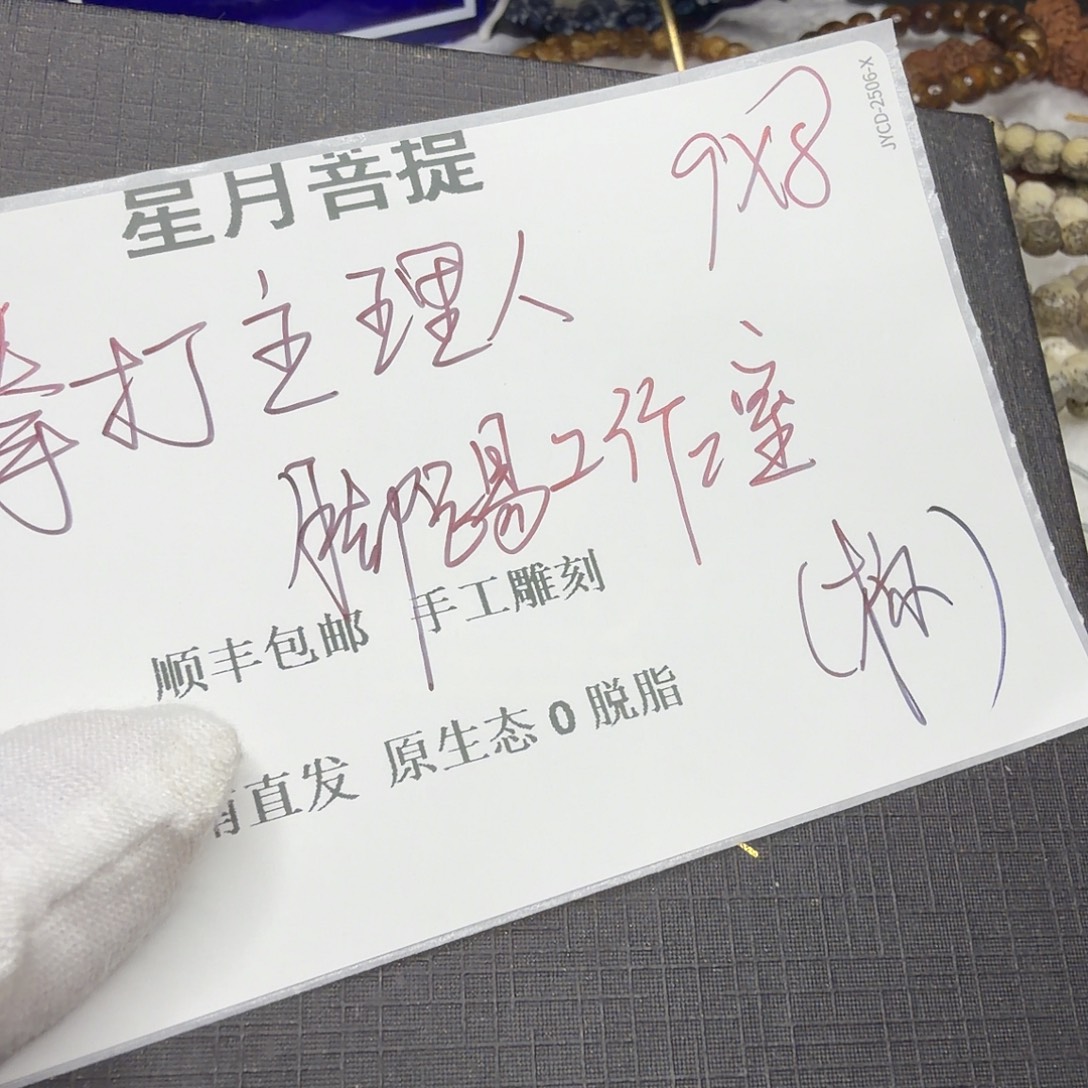 JYCD-2506-X
9X8
星月菩提
拳打主理人
脚踢工作室
顺丰包邮 手工雕刻
直发 原生态0脱脂